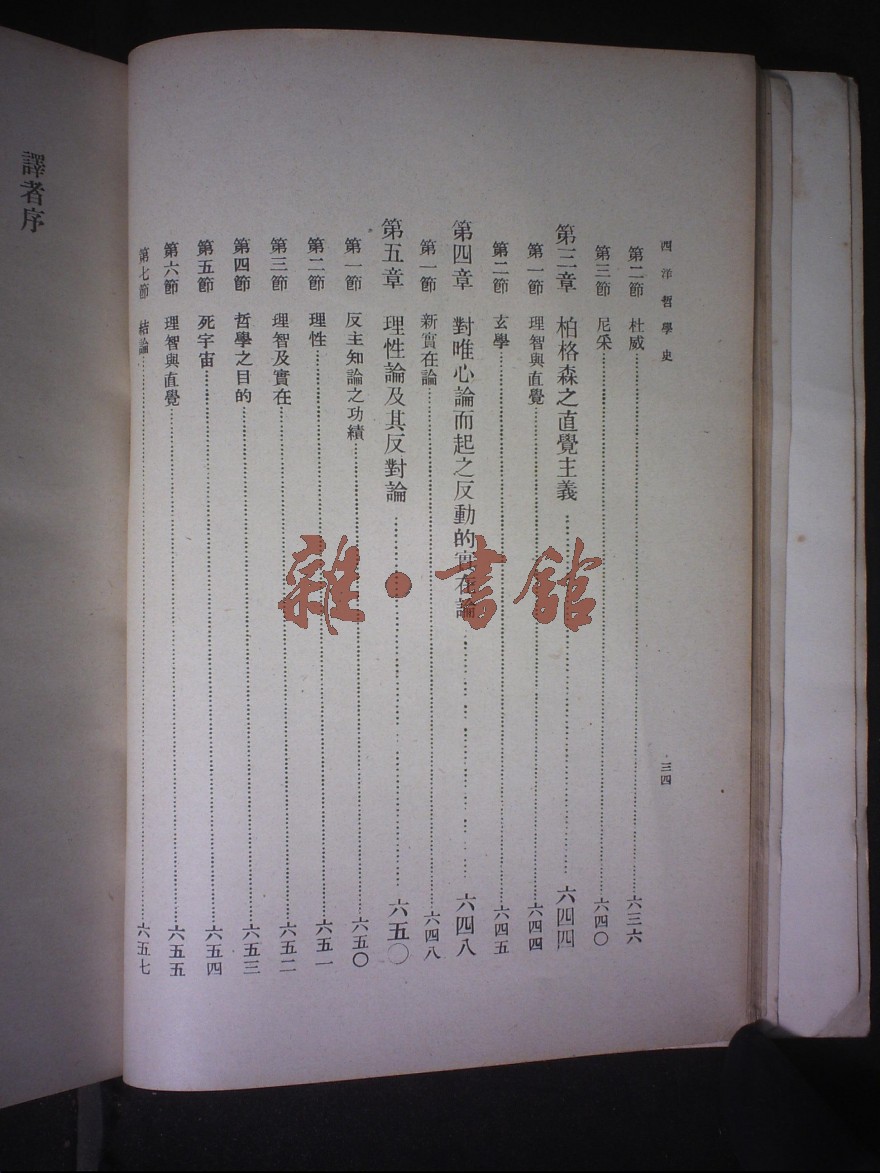 西洋哲學史
三四
第二節 杜威 六三六
第三節 尼采 六四〇
第三章 柏格森之直覺主義 六四四
第一節 理智與直覺 六四四
第二節 玄學 六四五
第四章 對唯心論而起之反動的實在論 六四八
第一節 新實在論 六四八
第五章 理性論及其反對論 六五〇
第一節 反主知論之功績 六五〇
第二節 理性 六五一
第三節 理智及實在 六五二
第四節 哲學之目的 六五三
第五節 死宇宙 六五四
第六節 理智與直覺 六五五
第七節 結論 六五七
譯者序
雜·書館